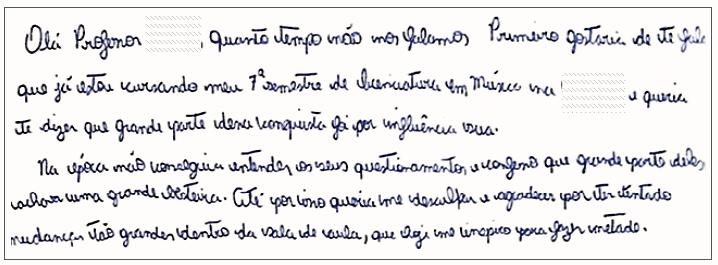 Olá Professor , quanto tempo não nos falamos Primeiro gostaria de te fala
que já estou cursando meu 7º semestre de licenciatura em Música na e queria
te dizer que grande parte dessa conquista foi por influência sua.
Na época não conseguia entender os seus questionamentos e confesso que grande parte deles
achava uma grande besteira. Até por isso queria me desculpar e agradecer por ter tentado
mudanças tão grandes dentro da sala de aula, que hoje me inspiro para fazer metade.